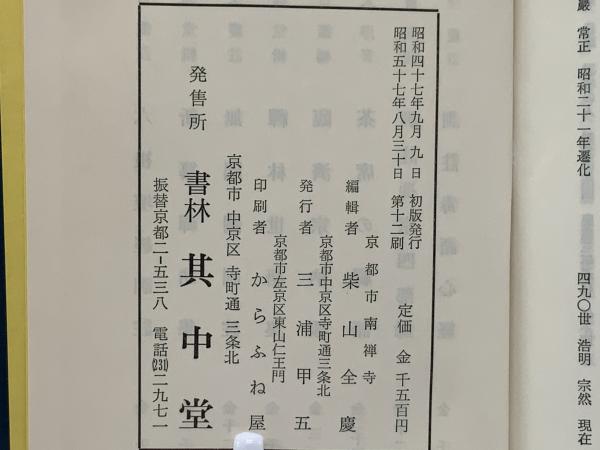 巖 常正 昭和二十一年遷化
四九〇世 浩明 宗然 現在
昭和四十七年九月九日 初版発行
昭和五十七年八月三十日 第十二刷
定価 金 千五百円
京都市南禅寺
編輯者 柴山全慶
京都市中京区寺町通三条北
発行者 三浦甲五
京都市左京区東山仁王門
印刷者 からふね屋
京都市 中京区 寺町通 三条北
発售所 書林 其中堂
振替京都二-五三八 電話(231)二九七一